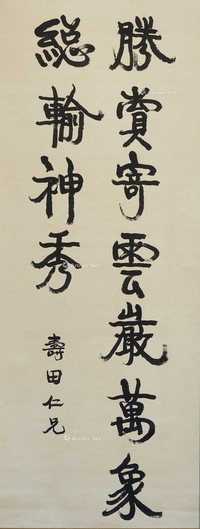 勝賞寄雲巖萬象
總輸神秀
壽田仁兄